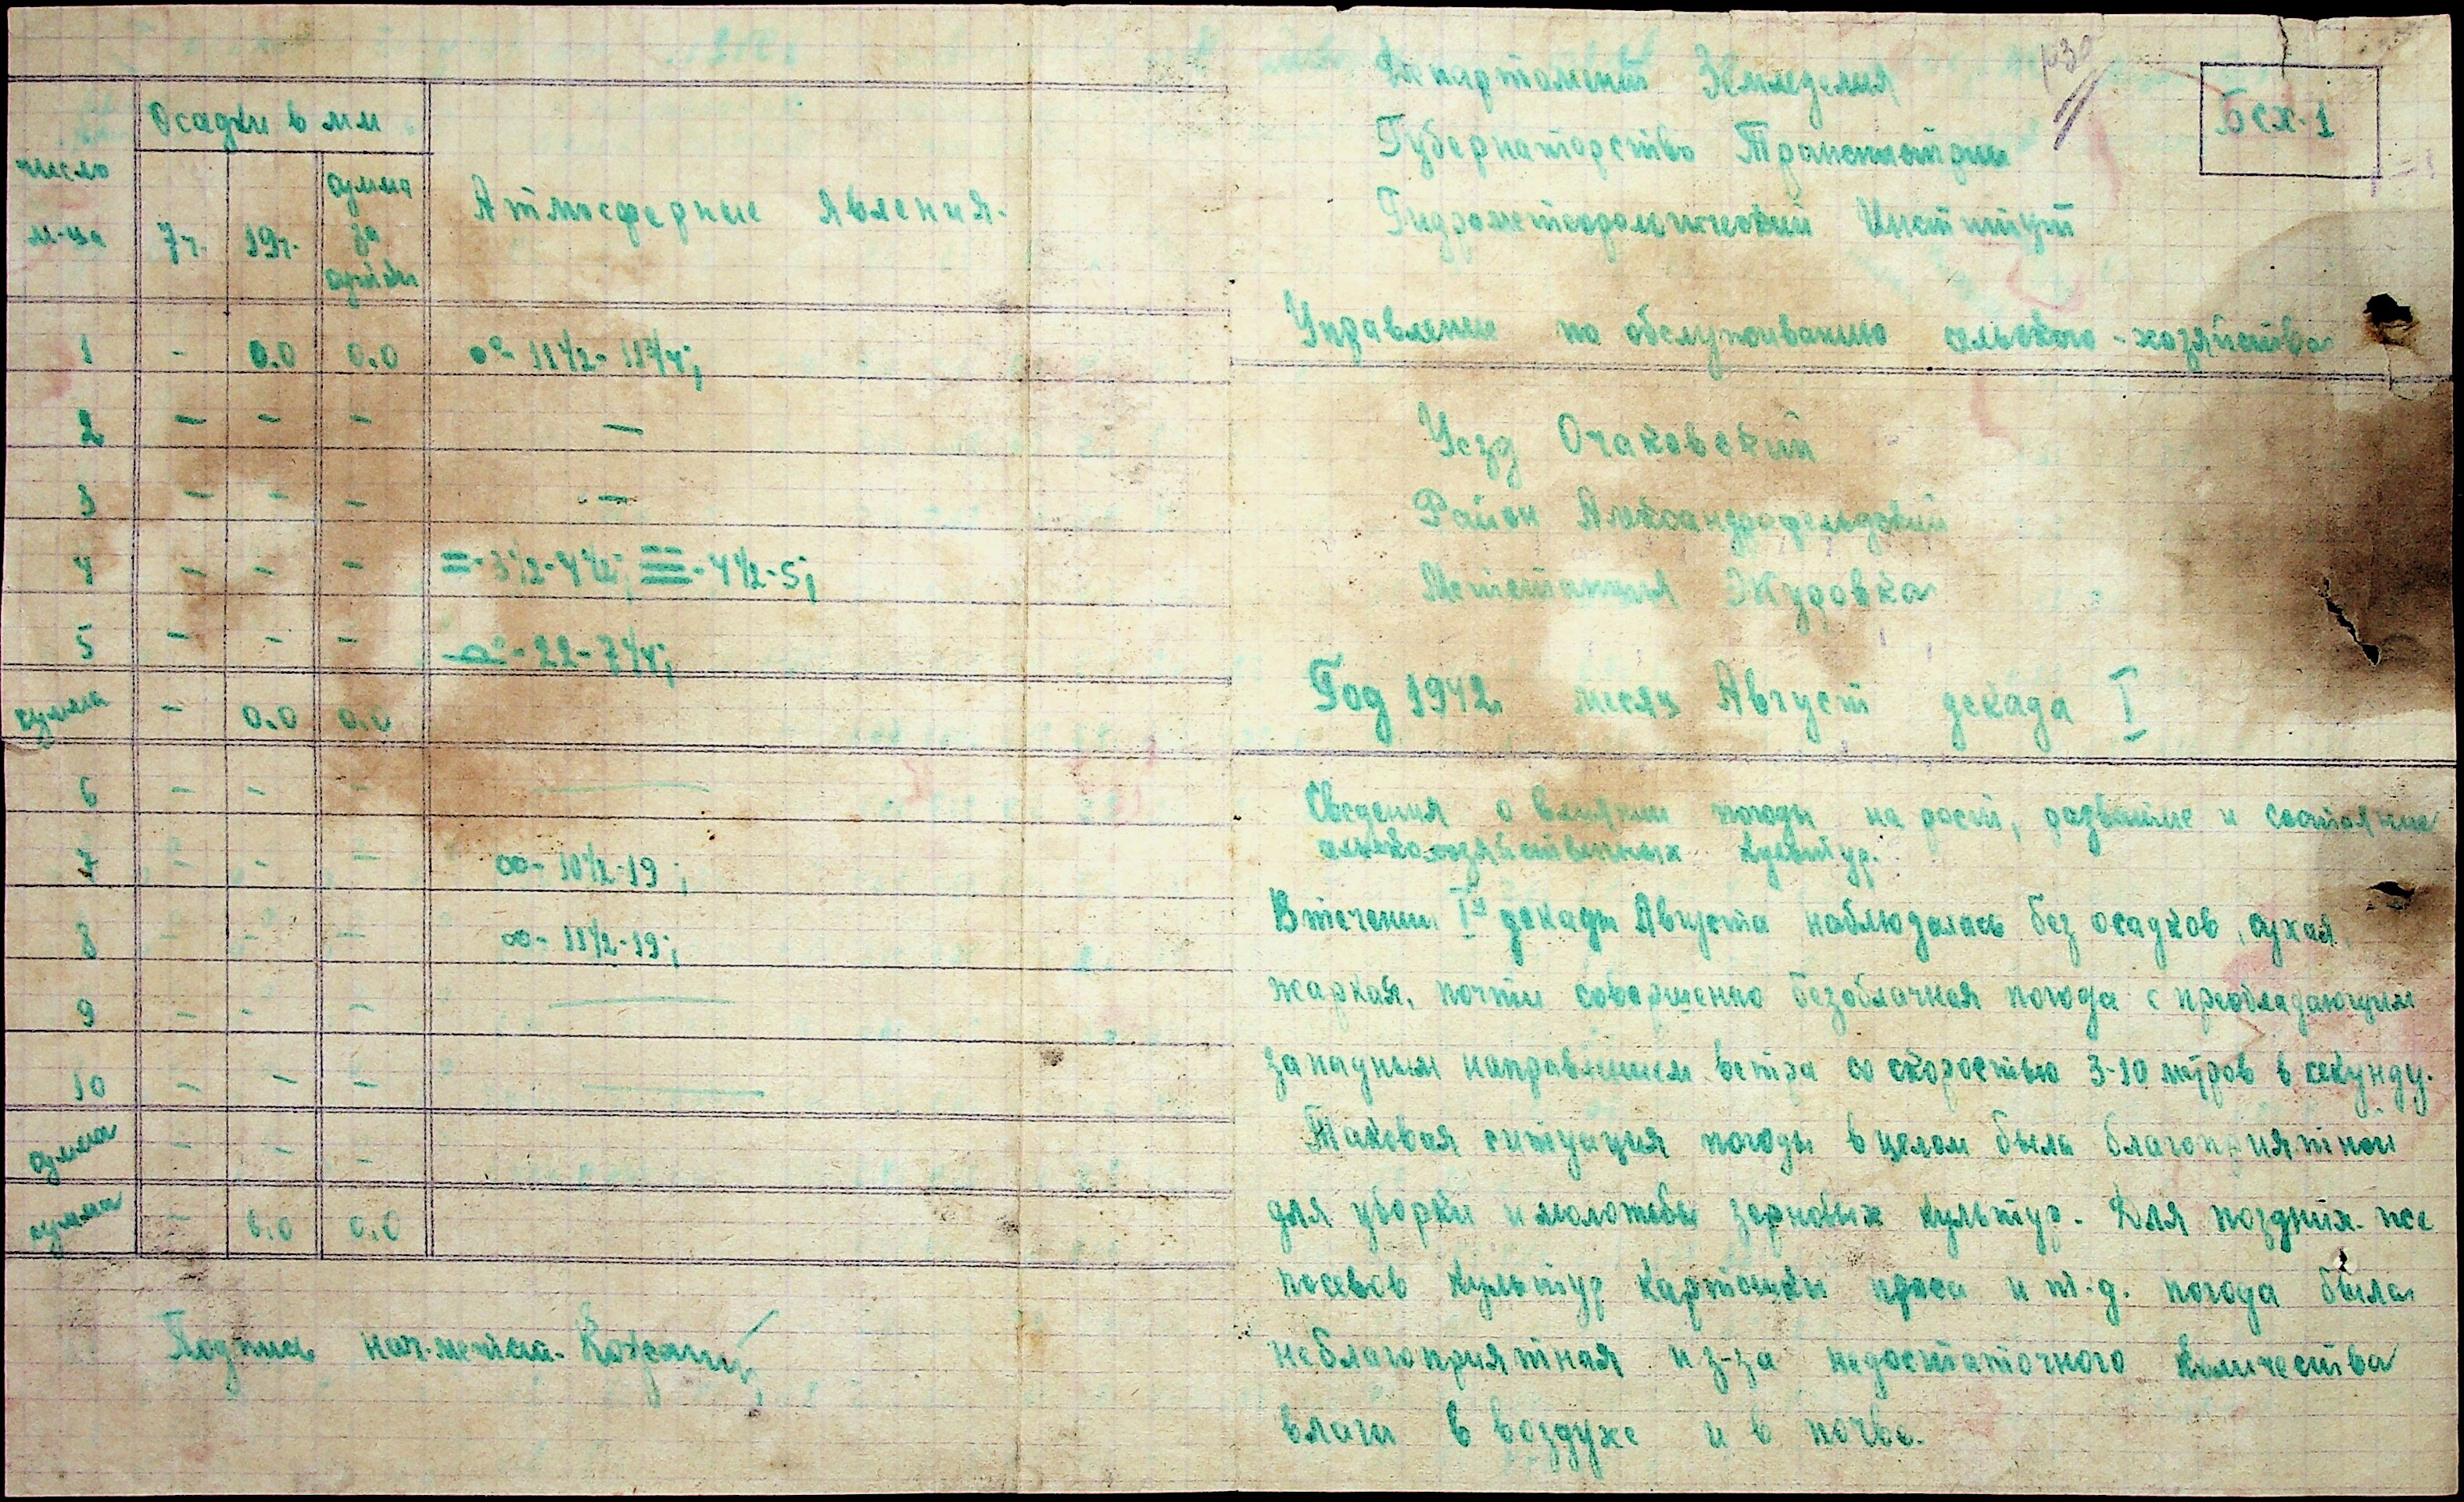 Осадки в мм
число м-ца
7ч. 19ч. сумма за сутки
Атмосферные явления.
1 - 0.0 0.0 ●⁰- 11½- 11¾;
2 — — — —
3 — — — —
4 - - - =-3½-4½; ≡-4½-5;
5 - - - 22-7¼;
сумма - 0.0 0.0
6 - - - —
7 - - - ∞- 10½-19;
8 - - - ∞- 11½-19;
9 - - - —
10 - - - —
сумма - - -
сумма - 0.0 0.0
Подпись нач.
Департамент Земледелия
Губернаторство Транснистрии
Гидрометеорологический Институт
Бсх-1
Управление по обслуживанию сельского-хозяйства
Уезд Очаковский
Район Александрфельдский
Метстанция Жудовка
Год 1942 месяц Август декада I
Сведения о влиянии погоды на рост, развитие и состояние
сельскохозяйственных культур.
В течении Iй декады Августа наблюдалась без осадков, сухая,
жаркая, почти совершенно безоблачная погода с преобладающим
западным направлением ветра со скоростью 3-10 мтров в секунду.
Таковая ситуация погоды в целом была благоприятной
для уборки и молотьбы зерновых культур. Для поздних-же
посевов культур картошки проса и т.д. погода была
неблагоприятная из-за недостаточного количества
влаги в воздухе и в почве.